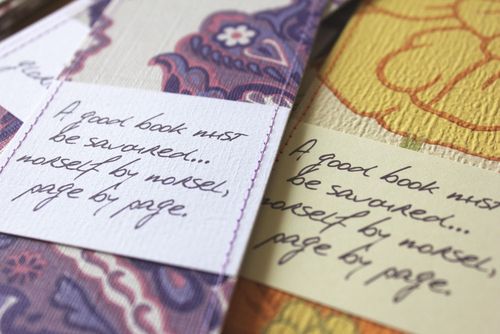 A good book must
be savoured...
morself by morsel,
page by page.
A good book must
be savoured...
orself by morsel,
page by page.